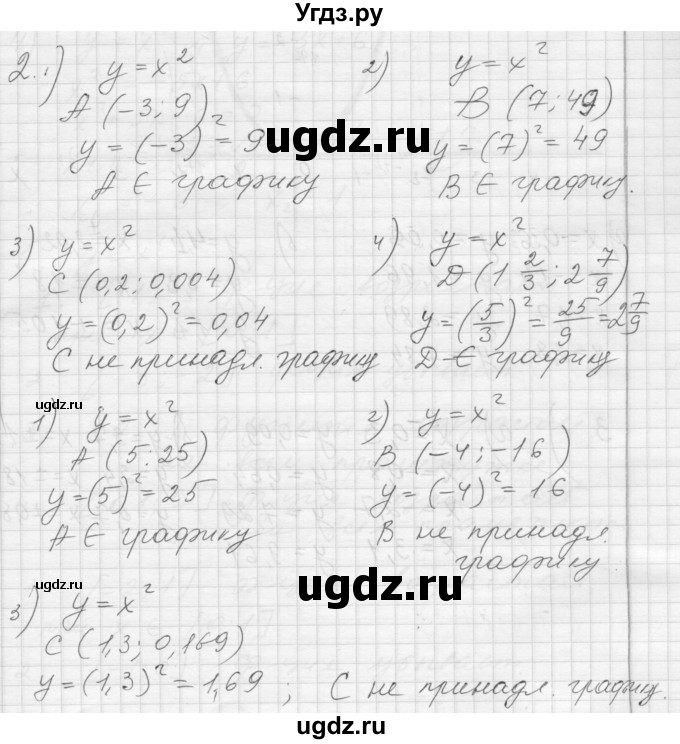 Угдз.ру
2. 1) y = x²
A (-3; 9)
y = (-3)² = 9
A ∈ графику
2) y = x²
B (7; 49)
y = (7)² = 49
B ∈ графику.
ugdz.ru
3) y = x²
C (0,2; 0,004)
y = (0,2)² = 0,04
C не принадл. графику
4) y = x²
D (1 2/3; 2 7/9)
y = (5/3)² = 25/9 = 2 7/9
D ∈ графику
ugdz.ru
1) y = x²
A (5; 25)
y = (5)² = 25
A ∈ графику
2) y = x²
B (-4; -16)
y = (-4)² = 16
B не принадл.
графику
ugdz.ru
ugdz.ru
3) y = x²
C (1,3; 0,169)
y = (1,3)² = 1,69 ; C не принадл. графику.
ugdz.ru